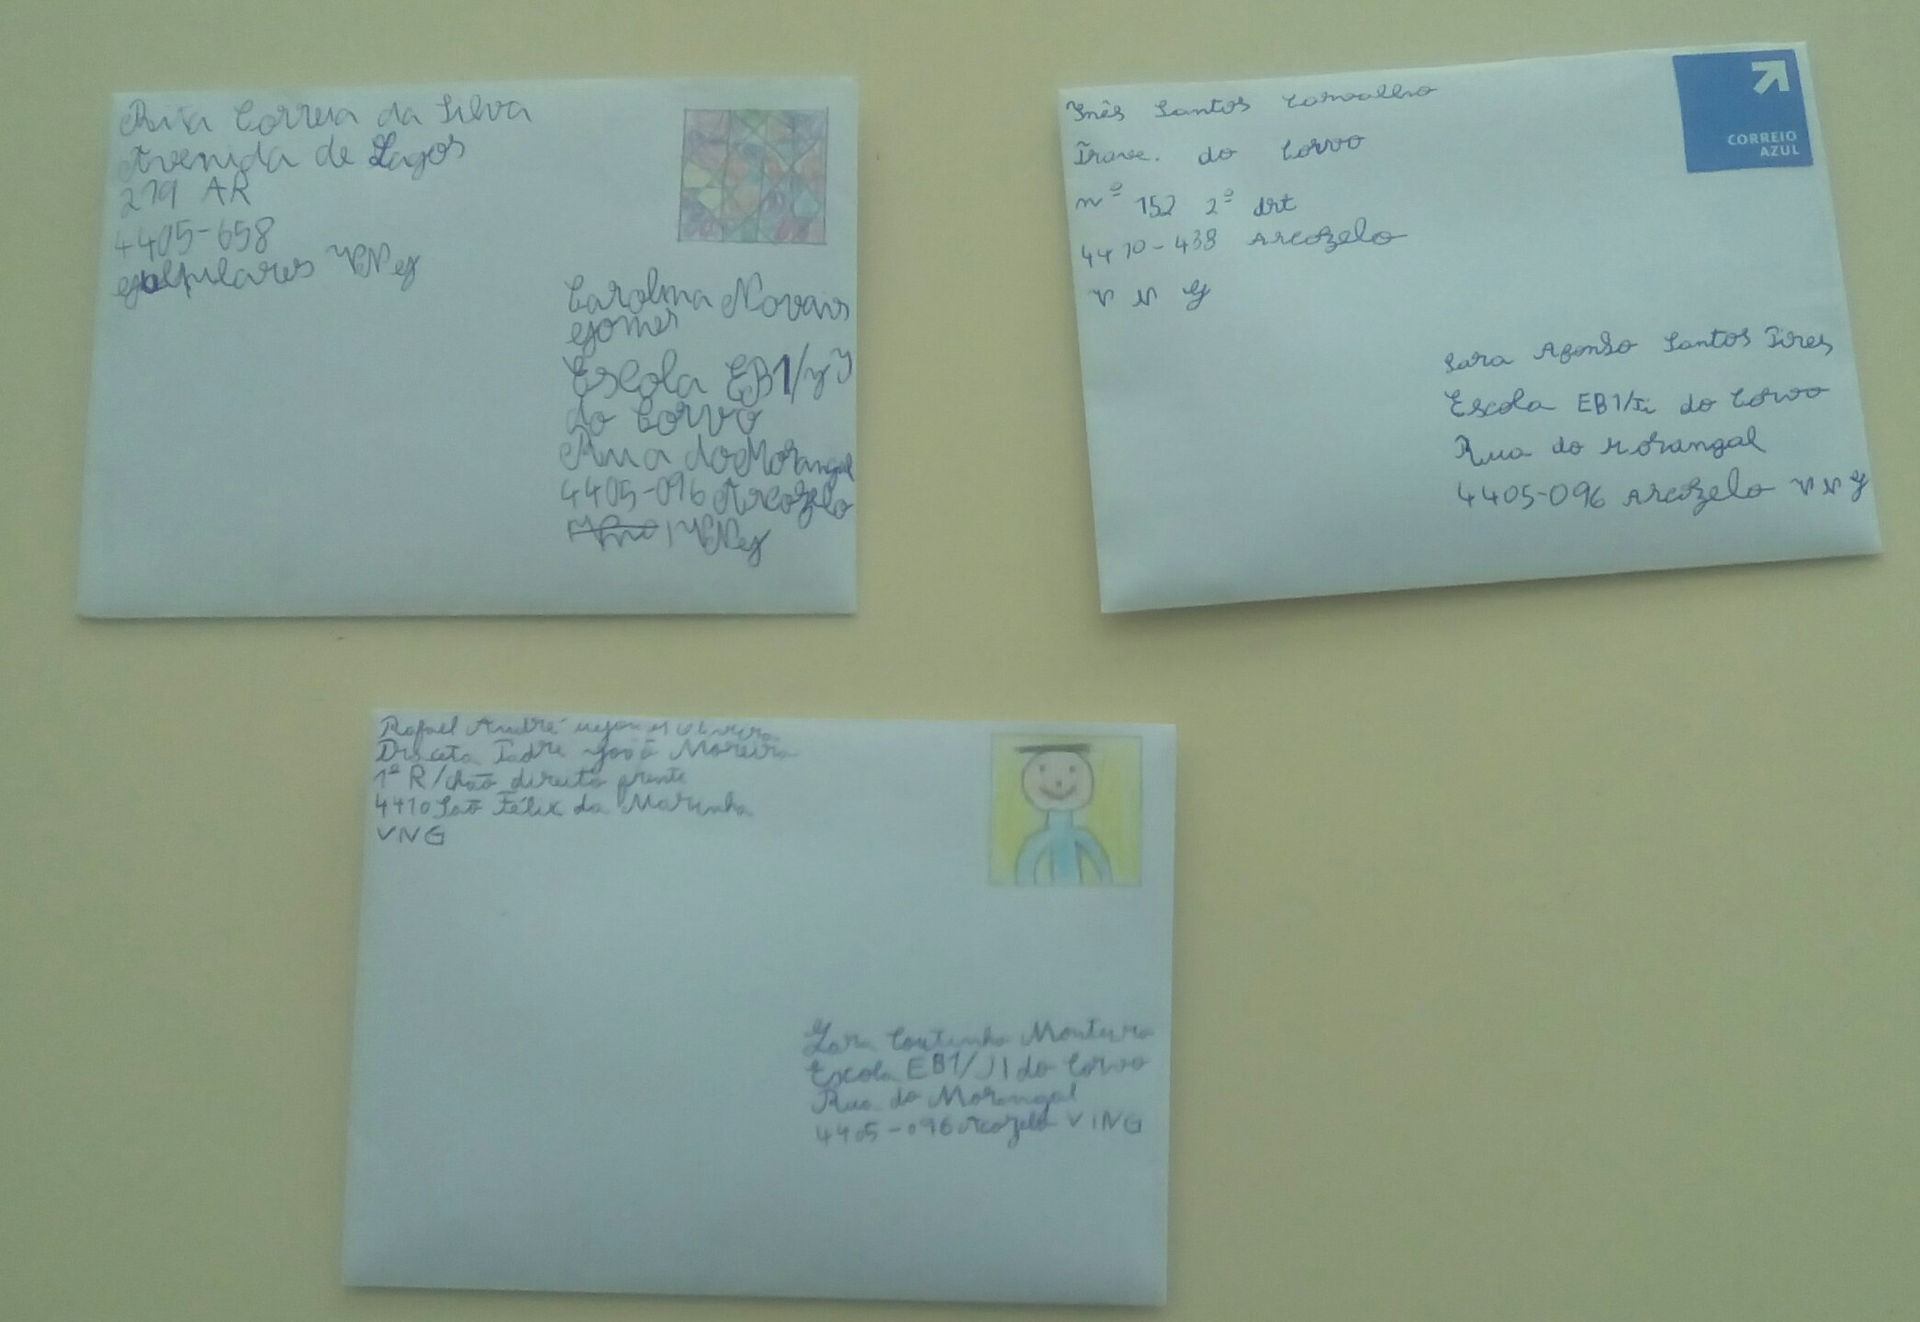 Rita Correia da Silva
Avenida de Lagos
279 AR
4405-658
Gulpilares VNG
Carolina Novais
Gomes
Escola EB1/JI
do Corvo
Rua do Morangal
4405-096 Arcozelo
VNG
Inês Santos Carvalho
Trave. do Corvo
nº 152 2º drt
4410-438 Arcozelo
V N G
CORREIO
AZUL
Sara Afonso Santos Pires
Escola EB1/Ji do Corvo
Rua do Morangal
4405-096 Arcozelo V N G
Rafael André
Padre João Moreira
1º R/chão direito frente
4410 São Félix da Marinha
VNG
Lara Coutinho Monteiro
Escola EB1/JI do Corvo
Rua do Morangal
4405-096 Arcozelo VING